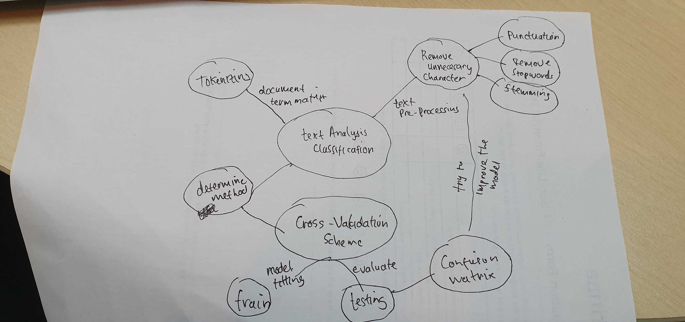 Punctuation
Remove
Stopwords
Stemming
Remove
Unnecessary
Character
Tokenizing
document
term matrix
text
Pre-processing
text Analysis
Classification
try to
improve the
model
determine
method
Cross-Validation
Scheme
model
fitting
evaluate
Confusion
Matrix
train
testing